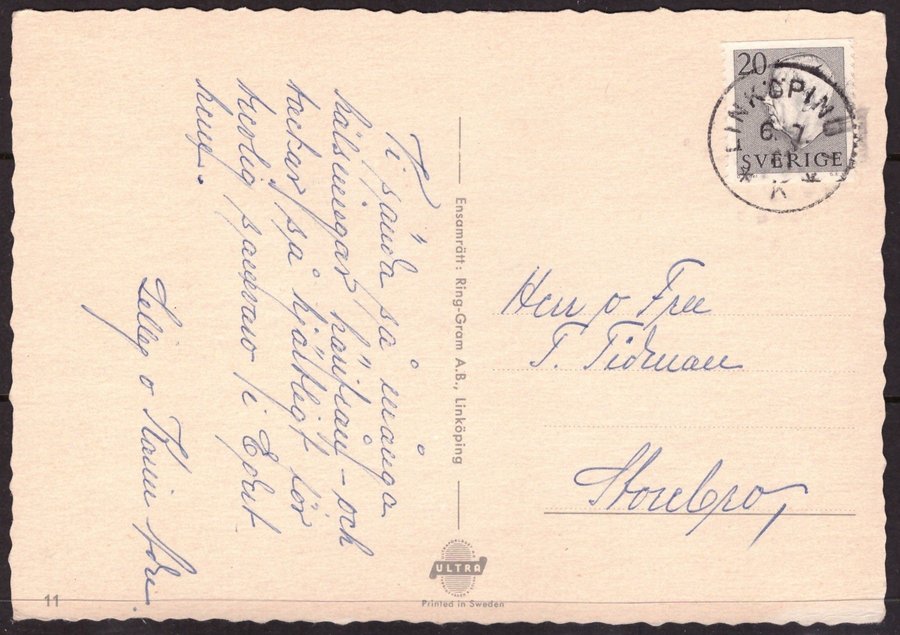 Vi sända så många
hälsningar härifrån – och
tackar så hjärtligt för
trevlig samvaro i Edert
hem.
o Karin
Ensamrätt: Ring-Gram A.B., Linköping
ULTRA
Printed in Sweden
11
20
SVERIGE
LINKÖPING
6. 7.
K
Herr o Fru
T. Tidman
Storebro,